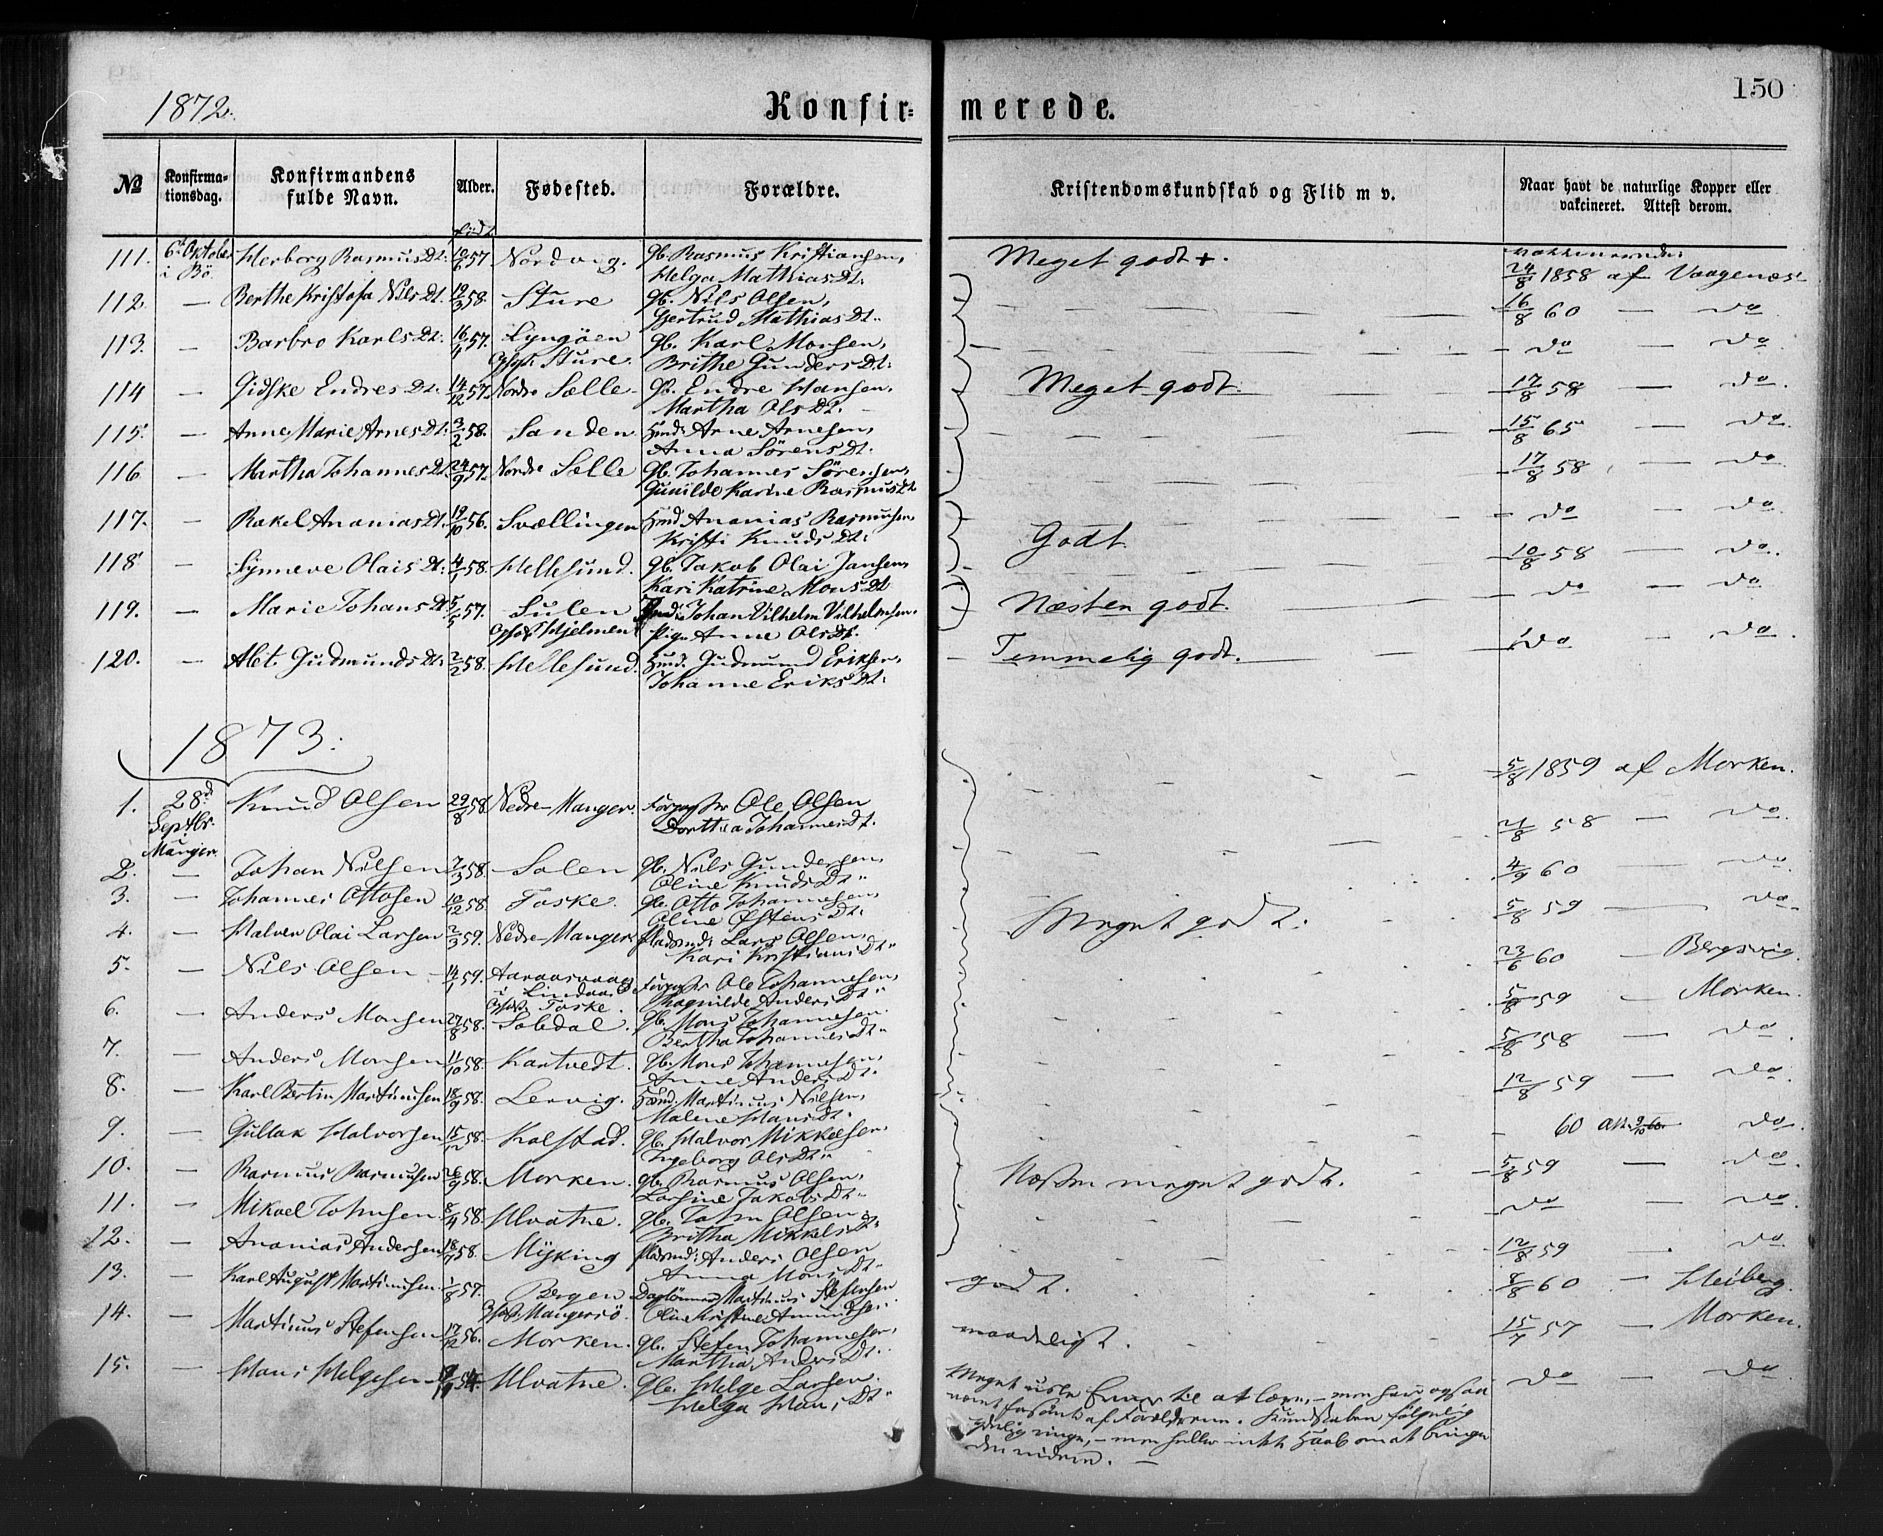 1872.
Konfirmerede.
150
№
Konfirmationsdag.
Konfirmandens fulde Navn.
Alder.
Fødested.
Forældre.
Kristendomskundskab og Flid m v.
Naar havt de naturlige Kopper eller vakcineret. Attest derom.
født
111. 6te Oktober i Bø Herborg RasmusDt. 57. Nordvig. Gb. Rasmus Kristiansen, Helga MatthiasDt. Meget godt +. 24/8 1858 af Vaagenæs
112. — Berthe Kristofa NilsDt. 19/3 58. Sture Gb. Nils Olsen, Gjertrud MathiasDt. — 16/8 60 — do
113. — Barbro KarlsDt. 57. Lyngöen Opfost. Sture. Gb. Karl Monsen, Brithe GundersDt. — do — do
114 — Gidske EndresDt. 14/12 57. Nordre Sælle Gb. Endre Hansen, Martha OlsDt. Meget godt. 17/8 58 — do.
115. — Anne Marie ArnesDt. 3/2 58. Sanden Hmd. Arne Arnesen, Anna SörensDt. — 15/8 65 — do.
116 — Martha JohannesDt. 24/9 57. Nordre Sælle Gb. Johannes Sörensen, Gunilde Karine RasmusDt — 17/8 58 — do.
117. — Rakel AnaniasDt. 19/10 56. Svællingen Hmd. Ananias Rasmussen, Kristi KnudsDt. — do — do.
118 — Synneve OlaisDt. 4/1 58. Hellesund. Gb. Jakob Olai Jansen, Kari Katrine MonsDt Godt 10/8 58 — do.
119. — Marie JohansDt 5/5 57. Sulen Opfost. Hjelmen Johan Vilhelm Vilhelmsen. Pige Anne OlsDt. Næsten godt. do — do
120. — Alet GudmundsDt. 2/2 58. Hellesund. Hmd. Gudmund Eriksen, Johanne EriksDt. Temmelig godt. — do — do.
1873.
1. 28d Septbr. Manger Knud Olsen 29/8 58 Nedre-Manger. Ole Olsen Dorthea JohannesDt. — 5/8 1859 af Morken.
2. — Johan Nilsen 7/3 58. Solen Gb. Nils Gundersen, Oline KnudsDt. — 21/8 58 — do.
3. — Johannes Ottosen 10/12 58 Toske. Gb. Otto Johannesen, Oline ØstensDt. — 4/9 60 — do
4. — Halvor Olai Larsen 2/3 59. Nedre-Manger Pladsmd. Lars Olsen, Kari KristiansDt. Meget godt. 5/8 59 — do.
5. — Nils Olsen 14/1 59. Aaraasvaag i Lindaas Opfost. Toske. Ole Johannesen, Magnilde AndersDt. 23/6 60 — Bergsvig.
6. — Anders Monsen 27/8 58. Soledal. Gb. Mons Johannesen. Bertha JohannesDt. 5/8 59 — Morken.
7. — Anders Monsen 11/10 58. Kartvedt. Gb. Mons Johannesen, Anne AndersDt. 5/8 58 — do
8. — Karl Bertin Martinusen 18/9 58. Lervig. Hmd. Martinus Nilsen, Malene HansDt. 12/8 59 — do.
9. — Gullak Halvorsen 15/12 58. Kolstad. Gb. Halvor Mikkelsen, Ingeborg OlsDt. — 60 do.
10. — Rasmus Rasmusen 26/9 58. Morken. Gb. Rasmus Olsen, Larsine JakobsDt. Næsten meget godt. 5/8 59 — do.
11. — Mikael Johnsen 8/4 58. Hvatne. Gb. John Olsen Britha MikkelsDt. do — do
12. — Ananias Andersen 58. Myking Pladsmd. Anders Olsen Anna MonsDt. 12/8 59 — do
13. — Karl August Martinusen 1/8 57. Bergen Opfost. Mangersö. Daglönner Martinus Stefensen Oline Kristine godt. 8/8 60 — Heiberg.
14. — Martinus Stefensen 17/12 56. Morken. Gb. Stefen Johannesen, Martha AndersDt. maadeligt. 15/7 57 — Morken.
15. — Hans Helgesen 54. Hvatne. Gb. Helge Larsen. Helga HansDt Meget usle Evner til at lære, — men han ogsaa været forsömt af Forældrene. Kundskaben fölgelig ydelig ringe, — men heller intet Haab om at bringe den videre. — do — do